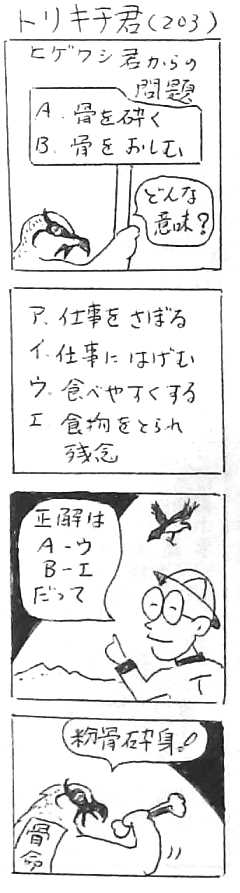 トリキチ君(203)
ヒゲワシ君からの
問題
A. 骨を砕く
B. 骨をおしむ
どんな
意味?
ア. 仕事をさぼる
イ. 仕事にはげむ
ウ. 食べやすくする
エ 食物をとられ
残念
正解は
A-ウ
B-エ
だって
T
粉骨砕身!!
骨
命